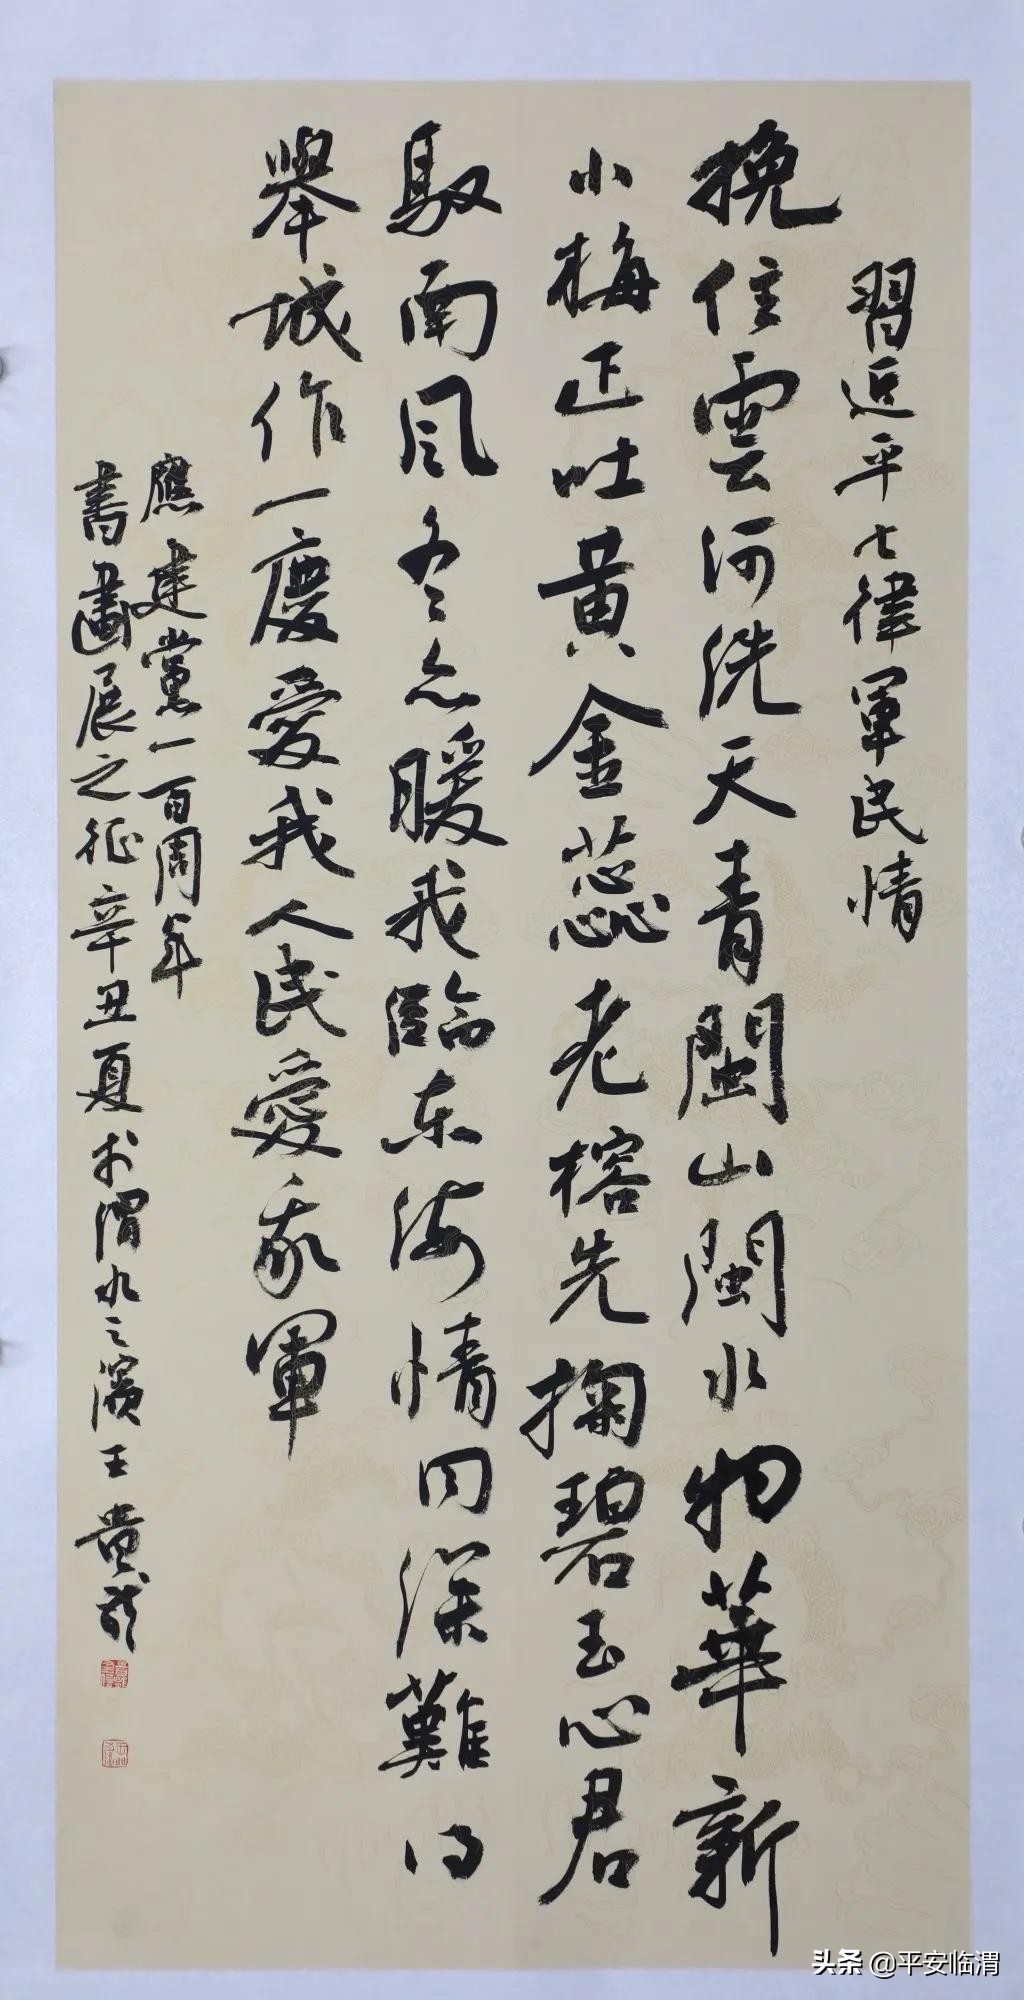 習近平七律軍民情
挽住雲河洗天青閩山閩水物華新
小梅正吐黄金蕊老榕先掬碧玉心君
馭南风冬亦暖我临东海情同深難得
舉城作一慶愛我人民愛我軍
應建黨一百周年
書畫展之征辛丑夏於渭水之濱王貴
头条 @平安临渭